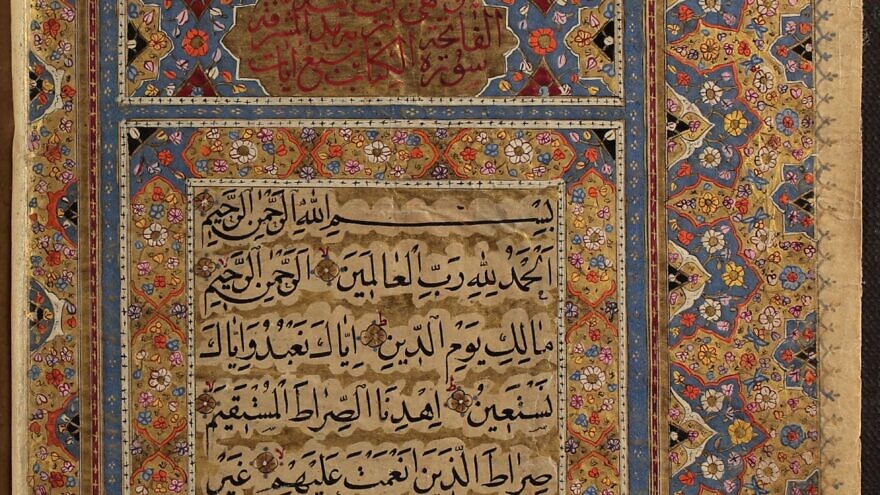 الفاتحة
سورة الكتاب سبع ايات
بِسْمِ اللهِ الرَّحْمٰنِ الرَّحِيْمِ
اَلْحَمْدُ لِلّٰهِ رَبِّ الْعَالَمِيْنَ الرَّحْمٰنِ الرَّحِيْمِ
مَالِكِ يَوْمِ الدِّيْنِ اِيَّاكَ نَعْبُدُ وَاِيَّاكَ
نَسْتَعِيْنُ اِهْدِنَا الصِّرَاطَ الْمُسْتَقِيْمَ
صِرَاطَ الَّذِيْنَ اَنْعَمْتَ عَلَيْهِمْ غَيْرِ